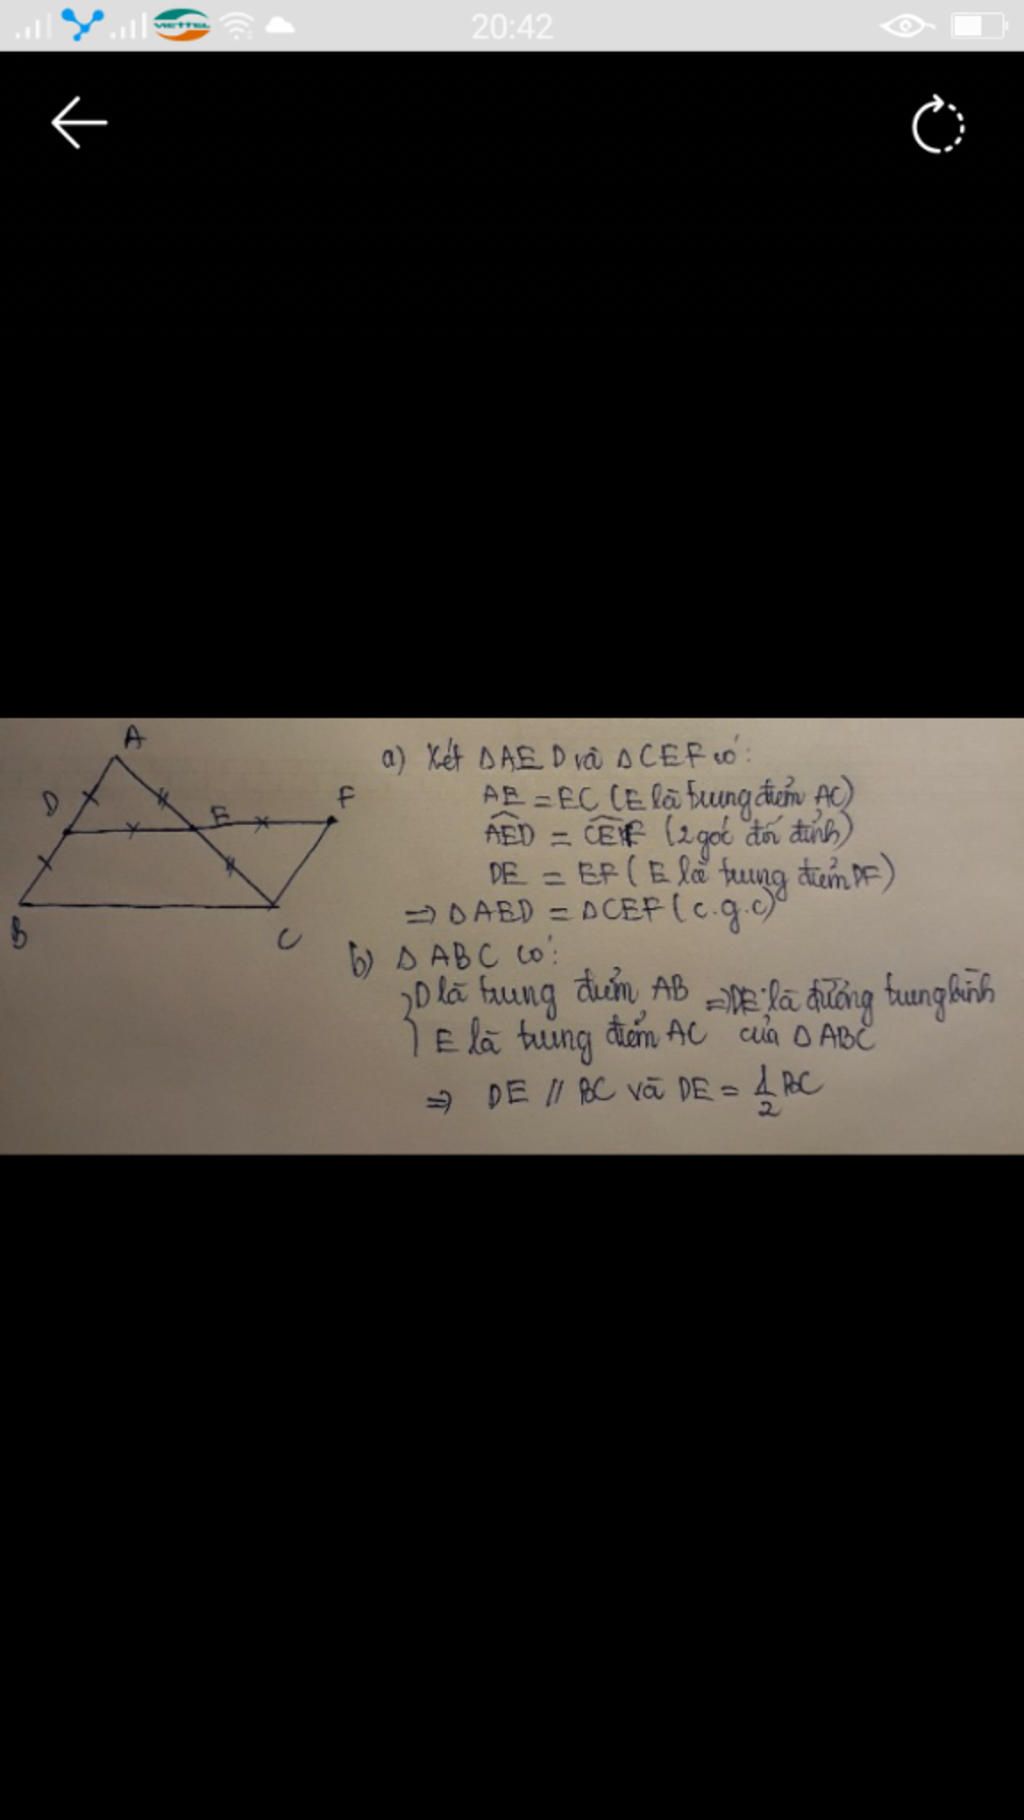 VIETTEL 20:42
A
D
E
F
B
C
a) Xét ΔAED và ΔCEF có:
AE = EC (E là trung điểm AC)
AED = CEF (2 góc đối đỉnh)
DE = EF (E là trung điểm DF)
⇒ ΔAED = ΔCEF (c.g.c)
b) Δ ABC có:
D là trung điểm AB ⇒ DE là đường trung bình
E là trung điểm AC của Δ ABC
⇒ DE // BC và DE = 1/2 BC